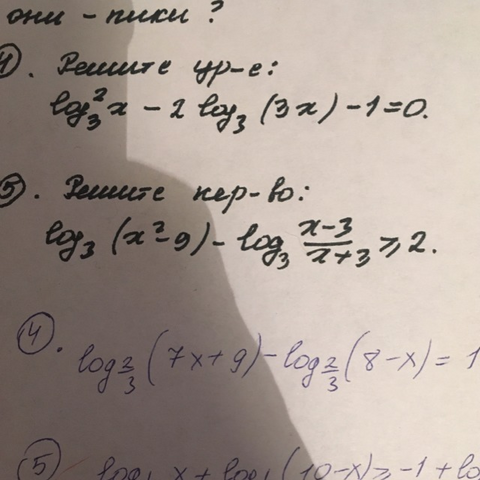 они - пики?
4. Решите ур-е:
log₃²x - 2 log₃ (3x) - 1 = 0.
5. Решите нер-во:
log₃ (x² - 9) - log₃ (x-3)/(x+3) ≥ 2.
4. log_{2/3} (7x+9) - log_{2/3} (8-x) = 1
5